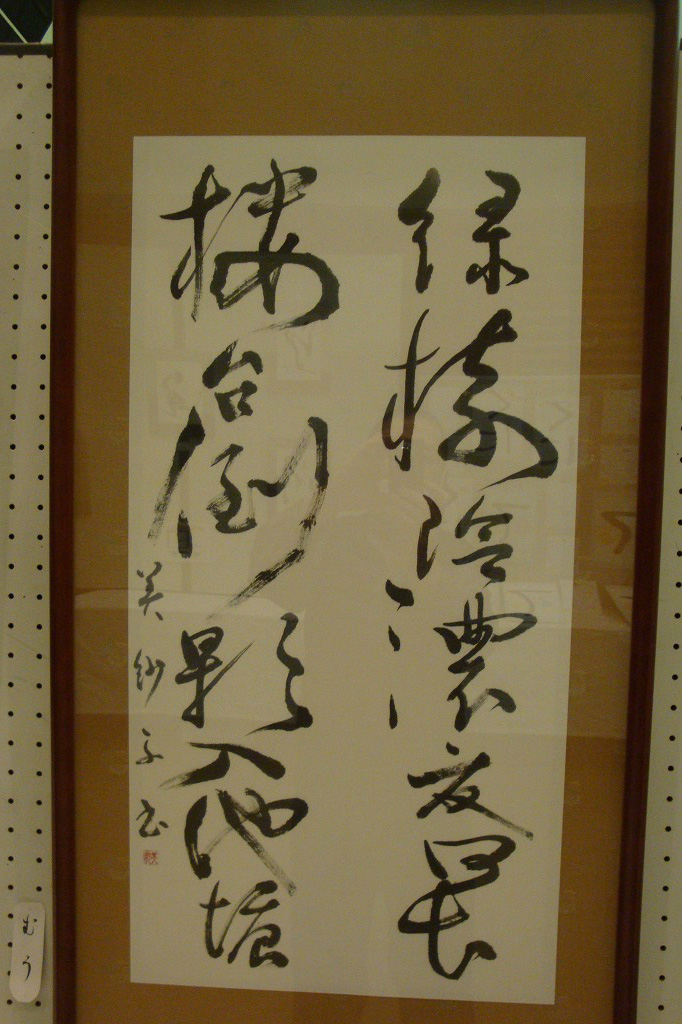 緑樹陰濃夏日長
楼台倒影入池塘
美紗子書
むう